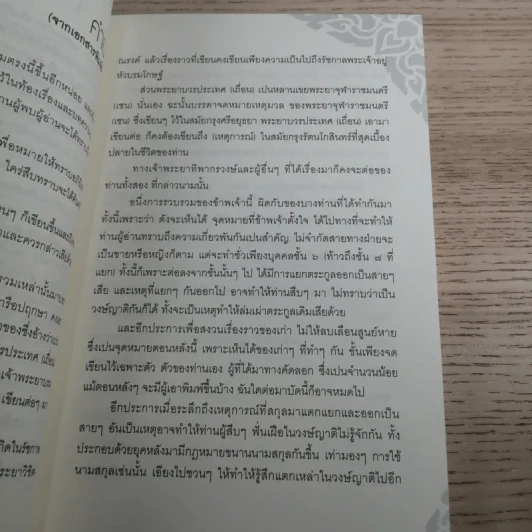 คำ
(จากเอกสารพิมพ์
มตรงนี้ขึ้นอีกหน่อย
ว้ในท้องเรื่องและบทความ
านผู้พบผู้อ่านจะได้ทราบ
พื่อหมายให้ทราบอธิ
ใคร่สืบทราบจะได้ค้น
นๆ ก็เขียนขึ้นและถึ
าและควรกล่าวเสีย
รวมเหล่านั้นมาเ
ารีอปฤกษา
องของซึ่งอ้างว่า
รประเทศ (เถื่อน
จ้าพระยาบม
เขียนต่อๆ
กิดในรัชกาล
ะยาวิชิต
ณรงค์ แล้วเรื่องราวที่เขียนคงเขียนเพียงความเป็นไปถึงรัชกาลพระเจ้าอยู่
หัวบรมโกษฐ์
ส่วนพระยาบวรประเทศ (เถื่อน) เป็นหลานเขยพระยาจุฬาราชมนตรี
(เชน) นั่นเอง ฉะนั้นบรรดาจดหมายเหตุมวล ของพระยาจุฬาราชมนตรี
(เชน) ซึ่งเขียนๆ ไว้ในสมัยกรุงศรีอยุธยา พระยาบวรประเทศ (เถื่อน) เอามา
เขียนต่อ ก็คงต้องเขียนถึง (เหตุการณ์) ในสมัยกรุงรัตนโกสินทร์ที่สุดเบื้อง
ปลายในชีวิตของท่าน
ทางเจ้าพระยาทิพากรวงษ์และผู้อื่นๆ ที่ได้เรื่องมาก็คงจะต่อของ
ท่านทั้งสอง ที่กล่าวนามนั้น
อนึ่งการรวบรวมของข้าพเจ้านี้ ผิดกับของบางท่านที่ได้ทำกันมา
ทั้งนี้เพราะว่า ดังจะเห็นได้ จุดหมายที่ข้าพเจ้าตั้งใจ ได้ไปทางที่จะทำให้
ท่านผู้อ่านทราบถึงความเกี่ยวพันกันเปนสำคัญ ไม่จำกัดสายทางฝ่ายจะ
เป็นชายหรือหญิงก็ตาม แต่จะทำชั่วเพียงบุคคลชั้น ๖ (ก้าวถึงชั้น ๗ ที่
แยก) ทั้งนี้ก็เพราะต่อลงจากชั้นนั้นๆ ไป ได้มีการแยกตระกูลออกเป็นสายๆ
เสีย และเหตุที่แยกๆ กันออกไป อาจทำให้ท่านสืบๆ มา ไม่ทราบว่าเป็น
วงษ์ญาติกันก็ได้ ทั้งจะเป็นเหตุทำให้ล่มเผ่าตระกูลเดิมเสียด้วย
และอีกประการเพื่อสงวนเรื่องราวของเก่า ไม่ให้ลบเลือนสูนย์หาย
ซึ่งเปนจุดหมายตอนหลังนี้ เพราะเห็นได้ของเก่าๆ ที่ทำๆ กัน ขั้นเพียงจด
เขียนไว้เฉพาะตัว ตัวของท่านเอง ผู้ที่ได้มาทางคัดลอก ซึ่งเป็นจำนวนน้อย
แม้ตอนหลังๆ จะมีผู้เอาพิมพ์ขึ้นบ้าง อันใดต่อมาบัดนี้ก็อาจหมดไป
อีกประการเมื่อระลึกถึงเหตุการณ์ที่สกุลมาแตกแยกและออกเป็น
สายๆ อันเป็นเหตุอาจทำให้ท่านผู้สืบๆ ฟั่นเฝือในวงษ์ญาติไม่รู้จักกัน ทั้ง
ประกอบด้วยยุคหลังมามีกฎหมายขนานนามสกุลกันขึ้น เท่ามองๆ การใช้
นามสกุลเช่นนั้น เอียงไปชวนๆ ให้ทำให้รู้สึกแตกเหล่าในวงษ์ญาติไปอีก